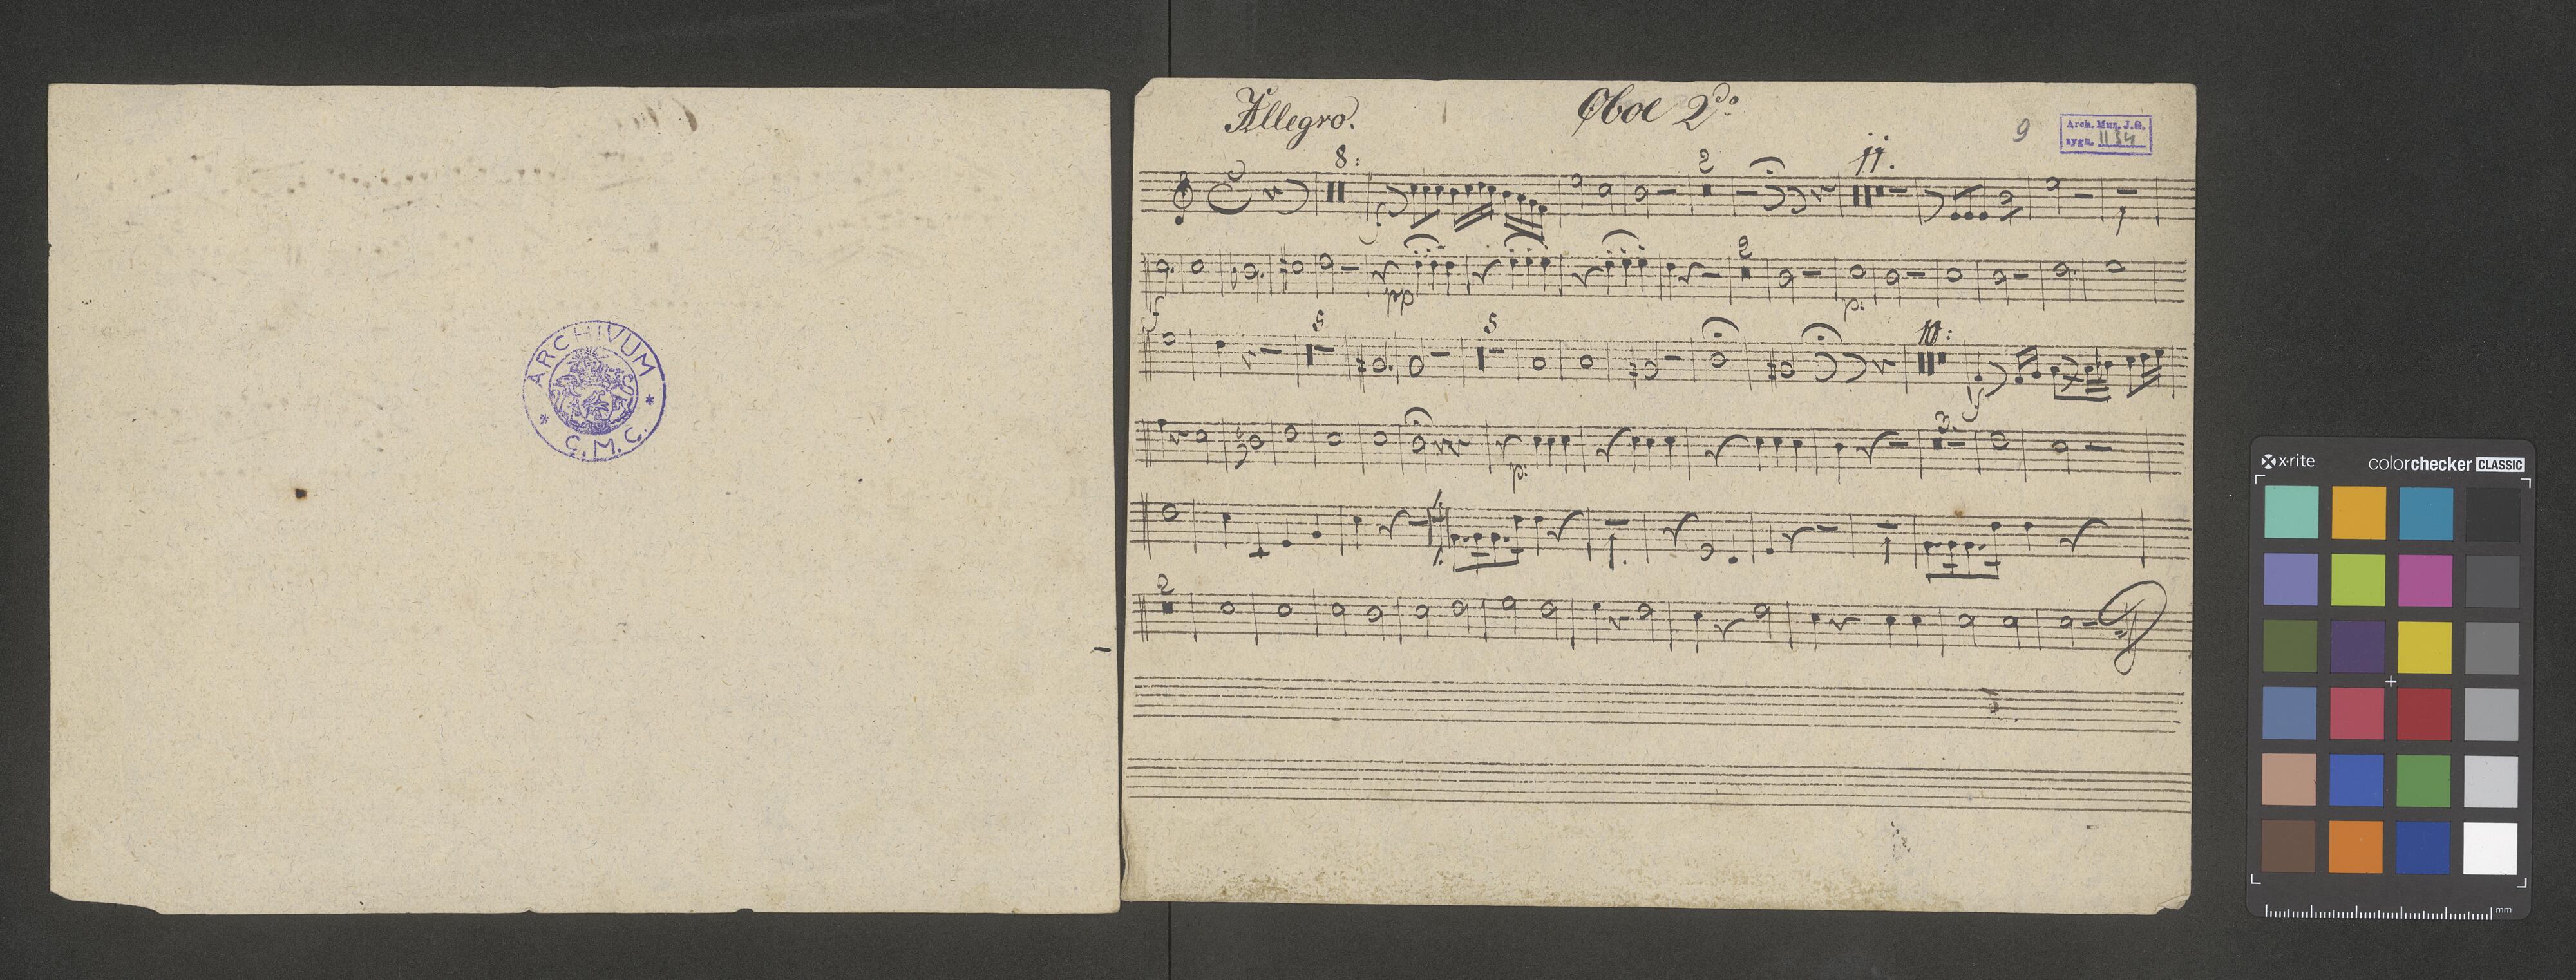 ARCHIVUM
* C. M. C. *
Allegro.
Oboe 2do
9
Arch. Muz. J.G.
sygn. 1134
8:
2
11.
f
pp
2
p:
f
5
5
10:
f
3.
p:
2
x-rite
colorchecker CLASSIC
mm